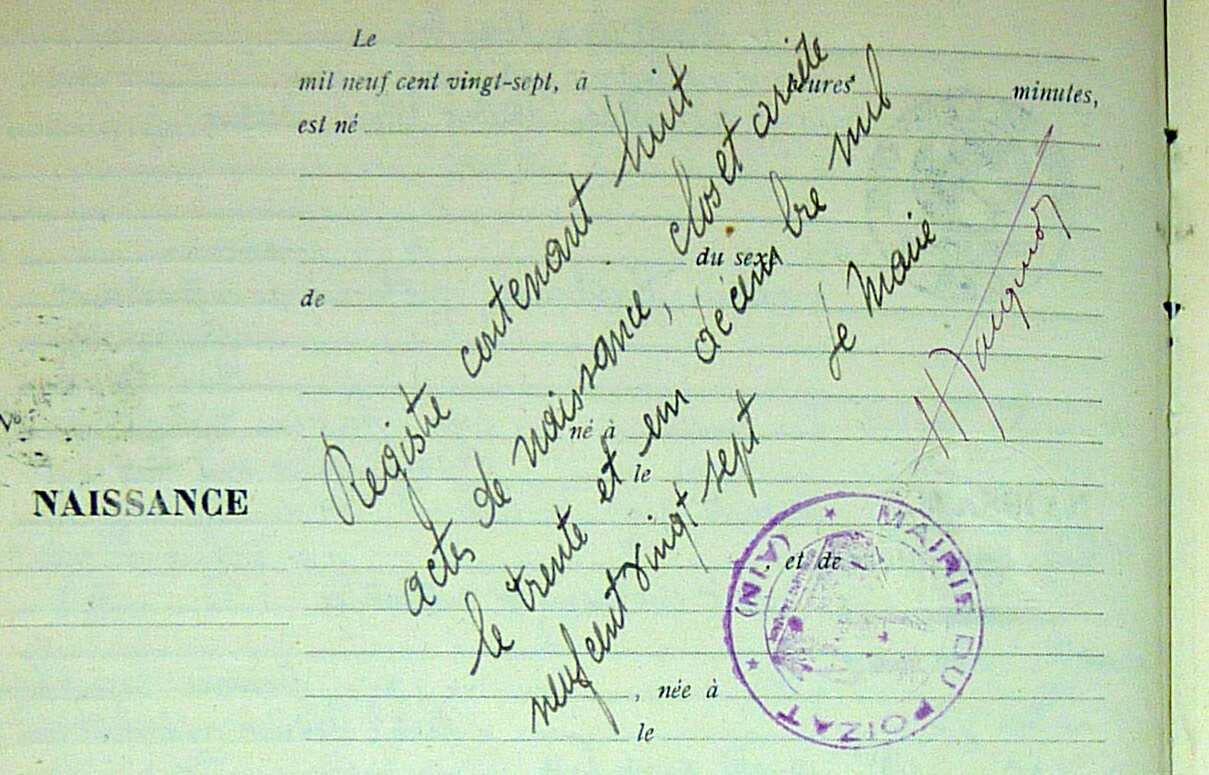 Le
mil neuf cent vingt-sept, à heures minutes,
est né
du sexe
de
né à
le
NAISSANCE
, et de
, née à
le
Registre contenant huit
actes de naissance, clos et arrêté
le trente et un décembre mil
neuf cent vingt sept
Le Maire
MAIRIE DU POIZAT
(AIN)